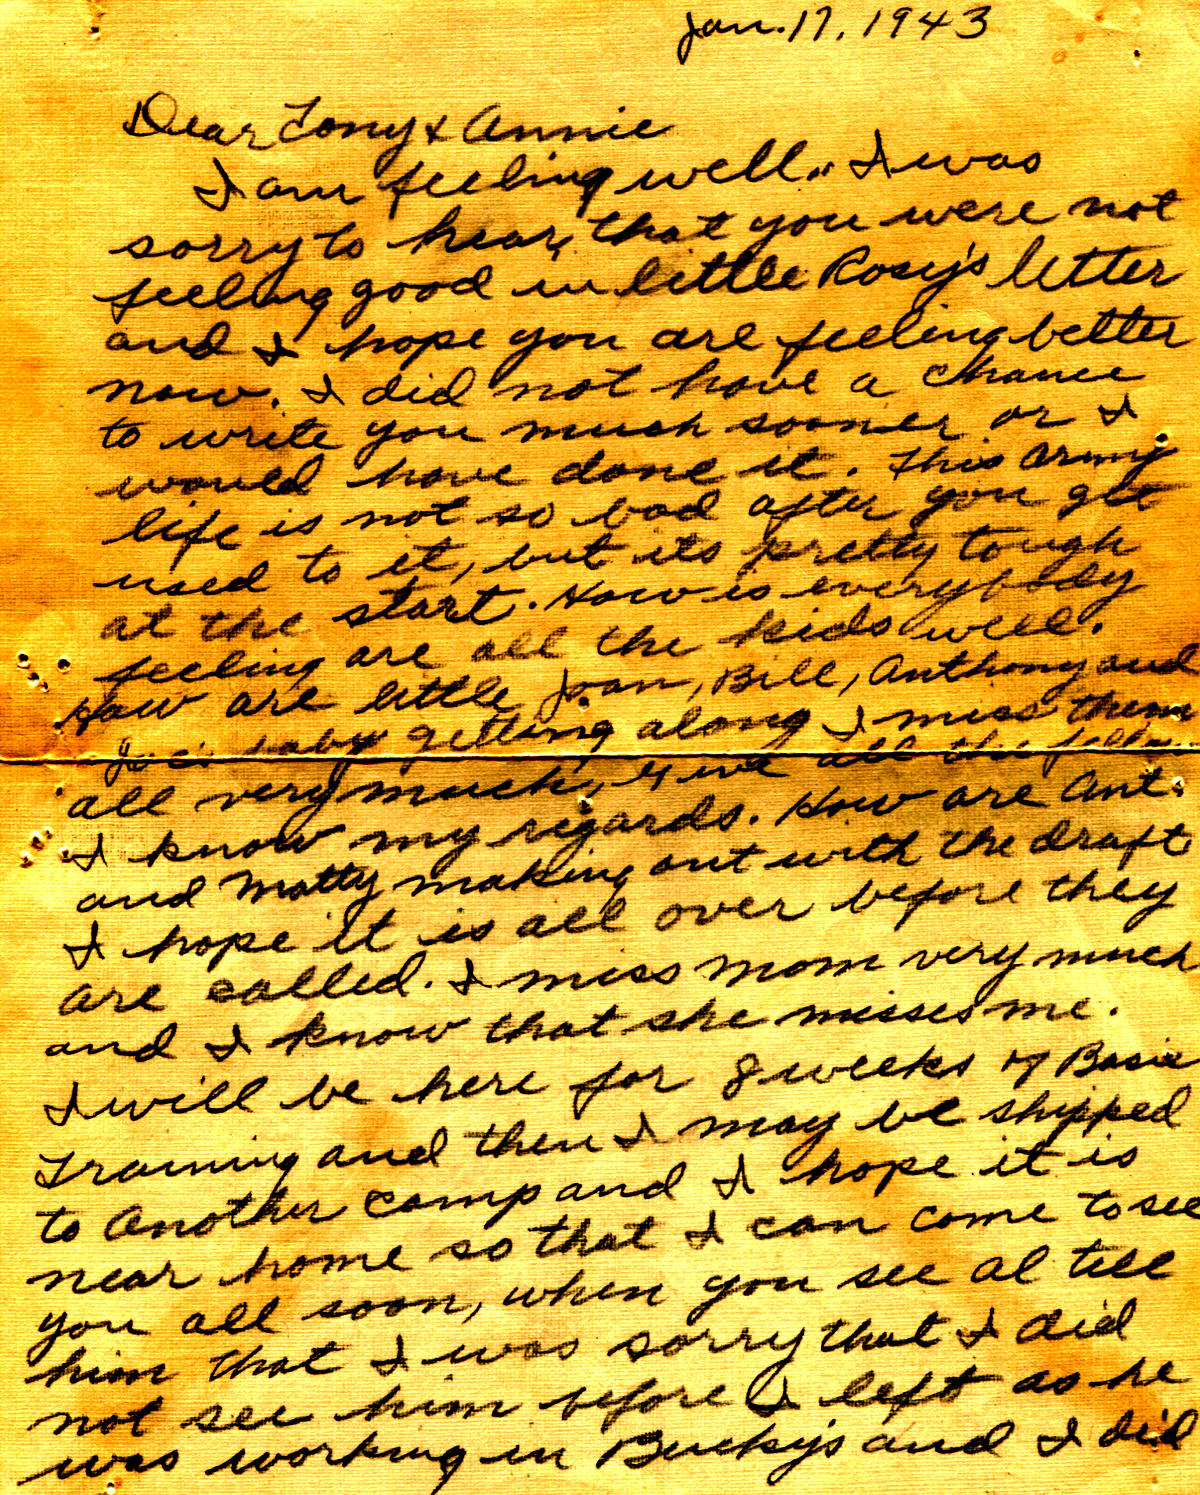 Jan. 17, 1943
Dear Tony & Annie
I am feeling well.. I was
sorry to hear, that you were not
feeling good in little Rosy's letter
and I hope you are feeling better
now. I did not have a chance
to write you much sooner or I
would have done it. This army
life is not so bad after you get
used to it, but its pretty tough
at the start. How is everybody
feeling are all the kids well.
How are little Joan, Bill, Anthony and
baby getting along I miss them
all very much, Give all the
I know my regards. How are Ant.
and Matty making out with the draft
I hope it is all over before they
are called. I miss mom very much
and I know that she misses me.
I will be here for 8 weeks of Basic
Training and then I may be shipped
to Another camp and I hope it is
near home so that I can come to see
you all soon, when you see al tell
him that I was sorry that I did
not see him before I left as he
was working in Bucky's and I did